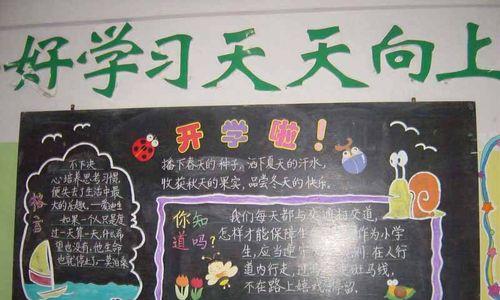 好学习天天向上
开学啦!
播下春天的种子,洒下夏天的汗水,
收获秋天的果实,品尝冬天的快乐。
格言
不下决
心培养思考习惯,
便失去了生活中最
大的乐趣。—爱迪生
如果一个人只是度
过一天算一天,什么希
望也没有,他生命
也就停止了—莫泊桑
你知
道吗?
我们每天都与交通打交道,
怎样才能保障生 作为小学
生,应当遵守 在人行
道内行走,过 走斑马线,
不在路上嬉戏 停留.